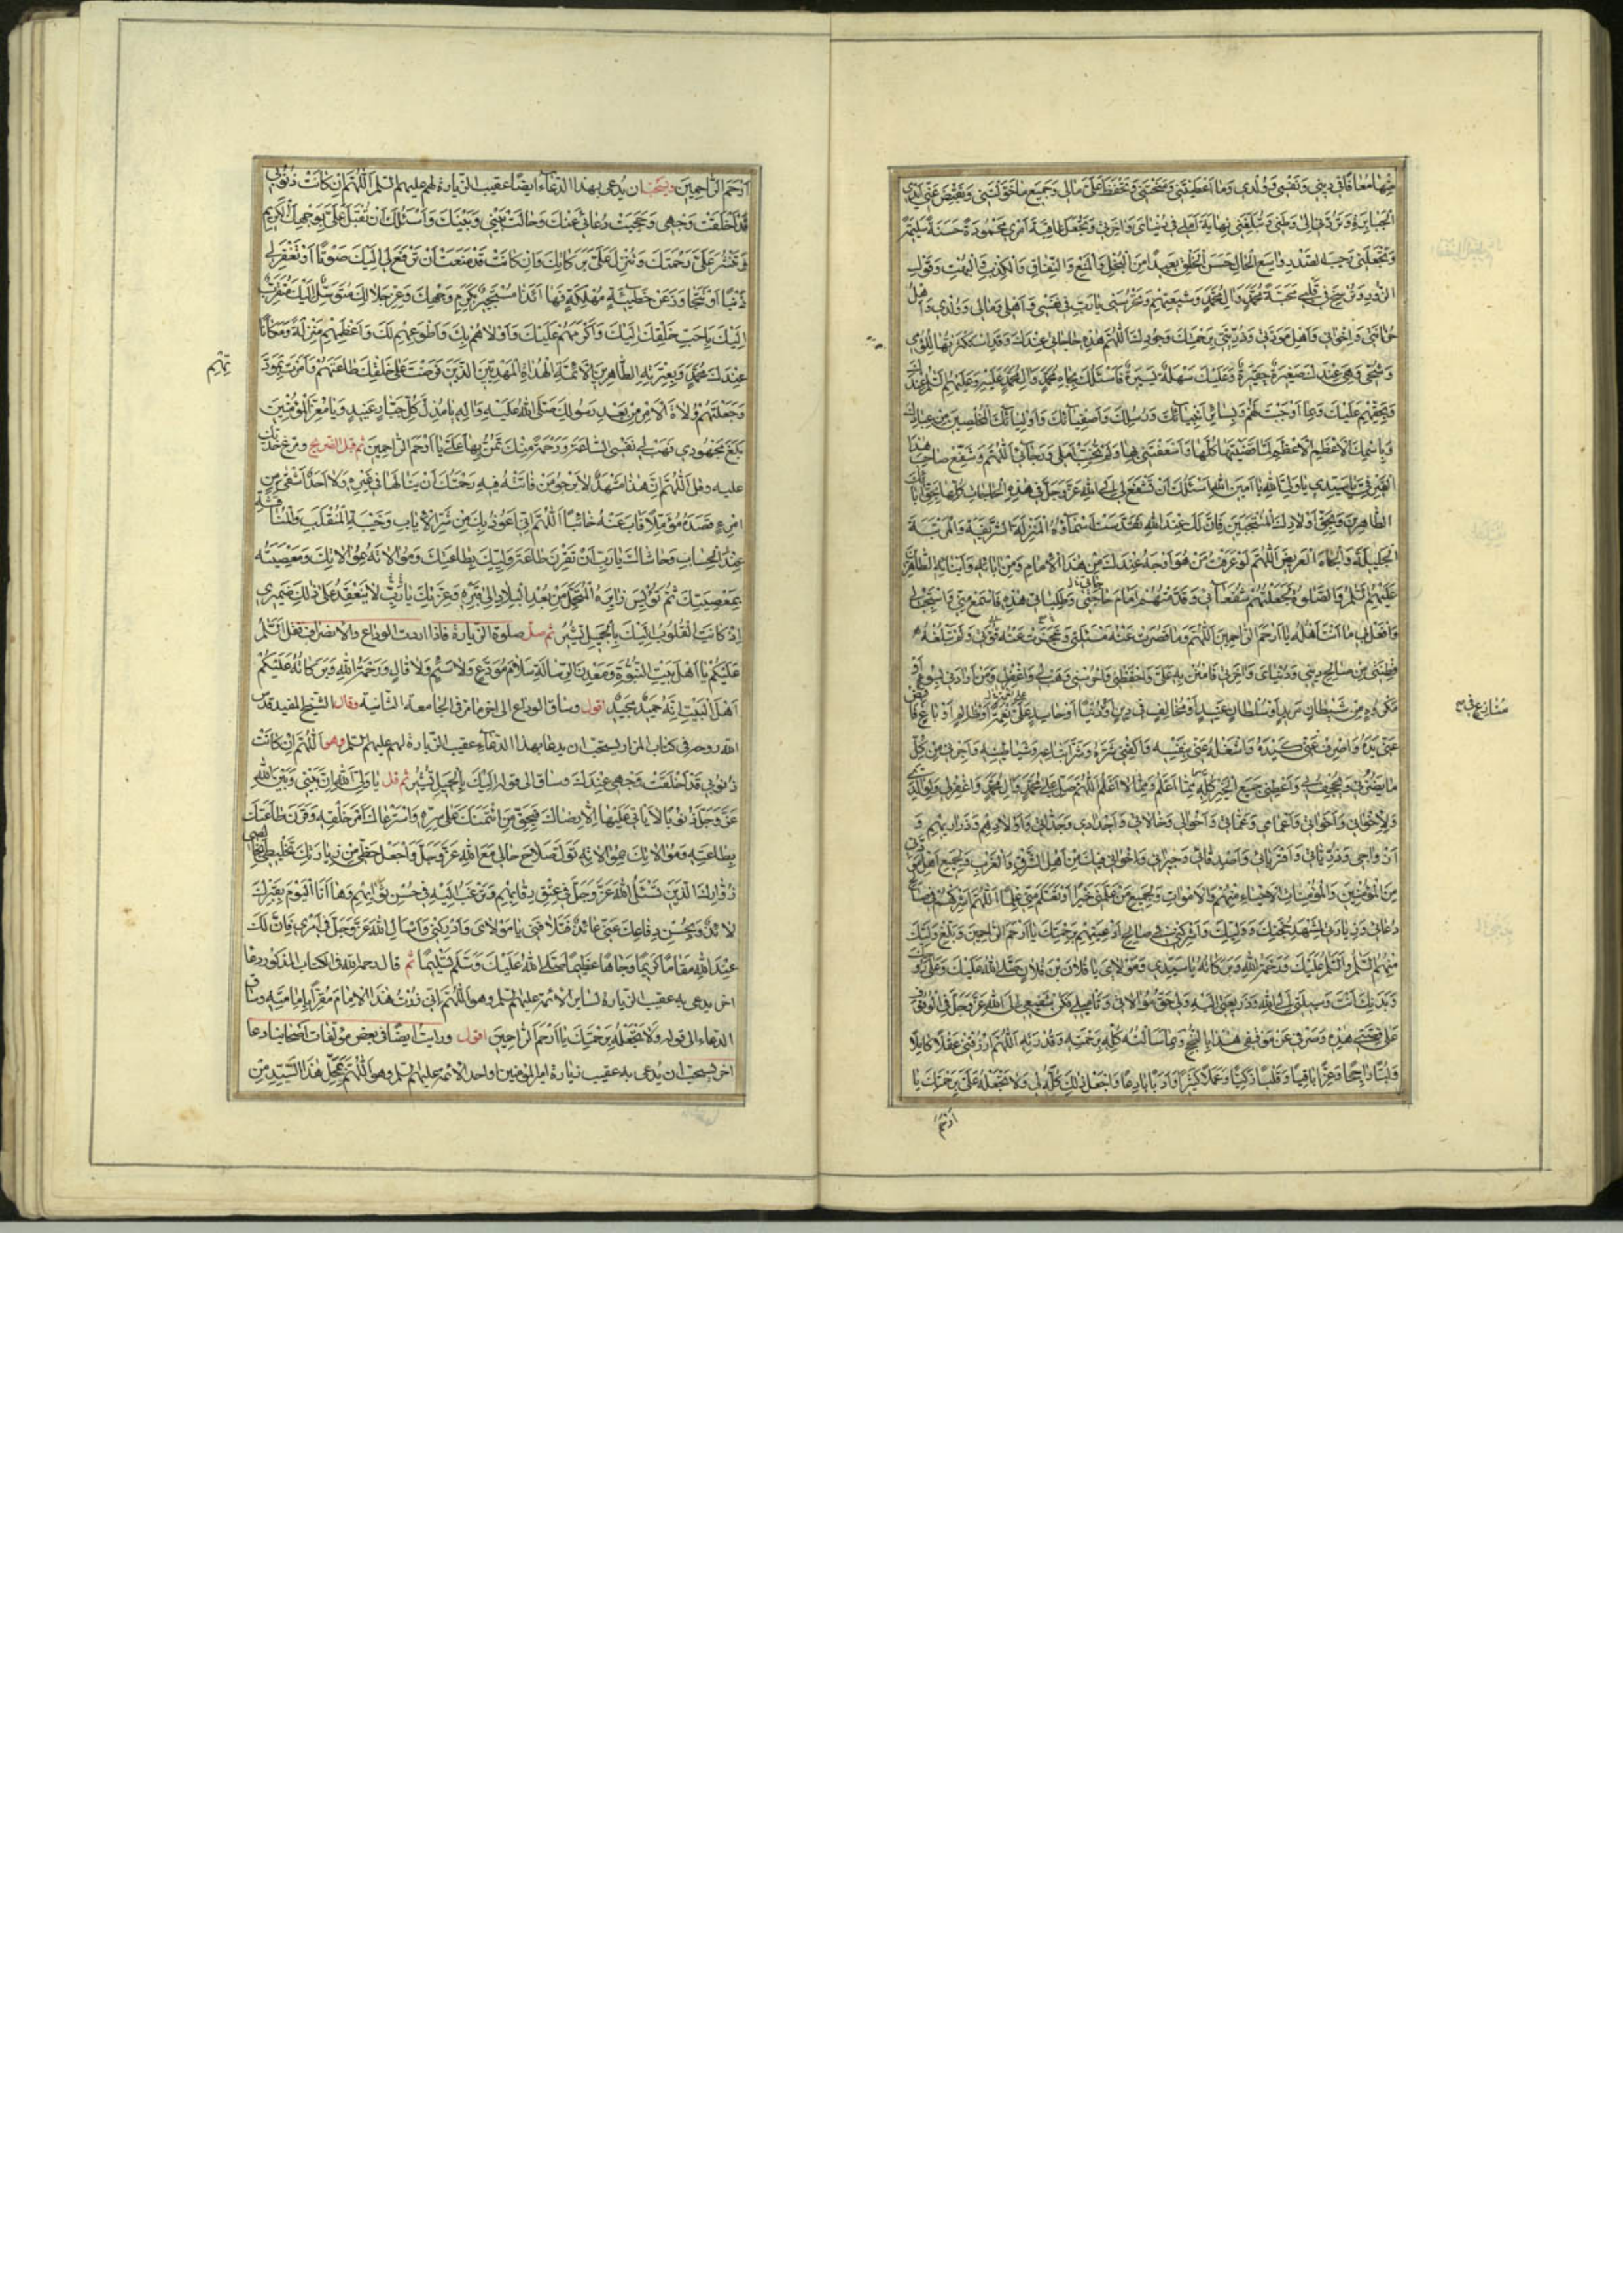 مِنْهَا مُعَافَاتِي فِي دِينِي وَنَفْسِي وَوُلْدِي وَمَا أَعْطَيْتَنِي وَمَنَحْتَنِي وَتَحْفَظَ عَلَيَّ مَالِي وَجَمِيعَ مَا خَوَّلْتَنِي وَتَقْبِضَ عَنِّي أَيْدِي
الْجَبَابِرَةِ وَتَرُدَّنِي إِلَى وَطَنِي وَتُبَلِّغَنِي نِهَايَةَ أَمَلِي فِي دُنْيَايَ وَآخِرَتِي وَتَجْعَلَ عَاقِبَةَ أَمْرِي مَحْمُودَةً حَسَنَةً سَلِيمَةً
وَتَجْعَلَنِي رَحِيبَ الصَّدْرِ وَاسِعَ الْحَالِ حَسَنَ الْخُلُقِ بَعِيدًا مِنَ الْبُخْلِ وَالْمَنْعِ وَالنِّفَاقِ وَالْكَذِبِ وَالْبَهْتِ وَقَوْلِ
الزُّورِ وَتُرَسِّخَ فِي قَلْبِي مَحَبَّةَ مُحَمَّدٍ وَآلِ مُحَمَّدٍ وَشِيعَتِهِمْ وَتَحْرُسَنِي يَا رَبِّ فِي نَفْسِي وَأَهْلِي وَمَالِي وَوُلْدِي وَأَهْلِ
حُزَانَتِي وَإِخْوَانِي وَأَهْلِ مَوَدَّتِي وَذُرِّيَّتِي بِرَحْمَتِكَ وَجُودِكَ اللَّهُمَّ هَذِهِ حَاجَاتِي عِنْدَكَ وَقَدِ اسْتَكْثَرْتُهَا لِلُؤْمِي
وَشُحِّي وَهِيَ عِنْدَكَ صَغِيرَةٌ حَقِيرَةٌ وَعَلَيْكَ سَهْلَةٌ يَسِيرَةٌ فَأَسْئَلُكَ بِجَاهِ مُحَمَّدٍ وَآلِ مُحَمَّدٍ عَلَيْهِ وَعَلَيْهِمُ السَّلَمُ عِنْدَكَ
وَبِحَقِّهِمْ عَلَيْكَ وَبِمَا أَوْجَبْتَ لَهُمْ وَبِسَائِرِ أَنْبِيَائِكَ وَرُسُلِكَ وَأَصْفِيَائِكَ وَأَوْلِيَائِكَ الْمُخْلَصِينَ مِنْ عِبَادِكَ
وَبِاسْمِكَ الْأَعْظَمِ الْأَعْظَمِ لَمَّا قَضَيْتَهَا كُلَّهَا وَأَسْعَفْتَنِي بِهَا وَلَمْ تُخَيِّبْ أَمَلِي وَرَجَائِي اللَّهُمَّ وَشَفِّعْ صَاحِبَ هَذَا
الْقَبْرِ فِيَّ يَا سَيِّدِي يَا وَلِيَّ اللَّهِ يَا أَمِينَ اللَّهِ أَسْئَلُكَ أَنْ تَشْفَعَ لِي إِلَى اللَّهِ عَزَّ وَجَلَّ فِي هَذِهِ الْحَاجَاتِ كُلِّهَا بِحَقِّ آبَائِكَ
الطَّاهِرِينَ وَبِحَقِّ أَوْلَادِكَ الْمُنْتَجَبِينَ فَإِنَّ لَكَ عِنْدَ اللَّهِ تَقَدَّسَتْ أَسْمَاؤُهُ الْمَنْزِلَةَ الشَّرِيفَةَ وَالْمَرْتَبَةَ
الْجَلِيلَةَ وَالْجَاهَ الْعَرِيضَ اللَّهُمَّ لَوْ عَرَفْتُ مَنْ هُوَ أَوْجَهُ عِنْدَكَ مِنْ هَذَا الْإِمَامِ وَمِنْ آبَائِهِ وَأَبْنَائِهِ الطَّاهِرِينَ
عَلَيْهِمُ السَّلَمُ وَالصَّلَوةُ لَجَعَلْتُهُمْ شُفَعَائِي وَقَدَّمْتُهُمْ أَمَامَ حَاجَتِي وَطَلِبَاتِي هَذِهِ فَاسْمَعْ مِنِّي وَاسْتَجِبْ لِي
وَافْعَلْ بِي مَا أَنْتَ أَهْلُهُ يَا أَرْحَمَ الرَّاحِمِينَ اللَّهُمَّ وَمَا قَصُرَتْ عَنْهُ مَسْئَلَتِي وَعَجَزَتْ عَنْهُ قُوَّتِي وَلَمْ تَبْلُغْهُ
فِطْنَتِي مِنْ صَالِحِ دِينِي وَدُنْيَايَ وَآخِرَتِي فَامْنُنْ بِهِ عَلَيَّ وَاحْفَظْنِي وَاحْرُسْنِي وَهَبْ لِي وَاغْفِرْ لِي وَمَنْ أَرَادَنِي بِسُوءٍ أَوْ
مَكْرُوهٍ مِنْ شَيْطَانٍ مَرِيدٍ أَوْ سُلْطَانٍ عَنِيدٍ أَوْ مُخَالِفٍ فِي دِينٍ أَوْ مُنَازِعٍ فِي دُنْيَا أَوْ حَاسِدٍ عَلَيَّ نِعْمَةً أَوْ ظَالِمٍ أَوْ بَاغٍ فَاقْبِضْ
عَنِّي يَدَهُ وَاصْرِفْ عَنِّي كَيْدَهُ وَاشْغَلْهُ عَنِّي بِنَفْسِهِ وَاكْفِنِي شَرَّهُ وَشَرَّ أَتْبَاعِهِ وَشَيَاطِينِهِ وَأَجِرْنِي مِنْ كُلِّ
مَا يَضُرُّنِي وَيُجْحِفُ بِي وَأَعْطِنِي جَمِيعَ الْخَيْرِ كُلِّهِ مِمَّا أَعْلَمُ وَمِمَّا لَا أَعْلَمُ اللَّهُمَّ صَلِّ عَلَى مُحَمَّدٍ وَآلِ مُحَمَّدٍ وَاغْفِرْ لِي وَلِوَالِدَيَّ
وَلِإِخْوَانِي وَأَخَوَاتِي وَأَعْمَامِي وَعَمَّاتِي وَأَخْوَالِي وَخَالَاتِي وَأَجْدَادِي وَجَدَّاتِي وَأَوْلَادِهِمْ وَذَرَارِيهِمْ وَ
أَزْوَاجِي وَذُرِّيَّاتِي وَأَقْرِبَائِي وَأَصْدِقَائِي وَجِيرَانِي وَإِخْوَانِي فِيكَ مِنْ أَهْلِ الشَّرْقِ وَالْغَرْبِ وَلِجَمِيعِ أَهْلِ مَوَدَّتِي
مِنَ الْمُؤْمِنِينَ وَالْمُؤْمِنَاتِ الْأَحْيَاءِ مِنْهُمْ وَالْأَمْوَاتِ وَلِجَمِيعِ مَنْ عَلَّمَنِي خَيْرًا أَوْ تَعَلَّمَ مِنِّي عِلْمًا اللَّهُمَّ أَشْرِكْهُمْ فِي صَالِحِ
دُعَائِي وَزِيَارَتِي لِمَشْهَدِ حُجَّتِكَ وَوَلِيِّكَ وَأَشْرِكْنِي فِي صَالِحِ أَدْعِيَتِهِمْ بِرَحْمَتِكَ يَا أَرْحَمَ الرَّاحِمِينَ وَبَلِّغْ وَلِيَّكَ
مِنْهُمُ السَّلَمَ وَالسَّلَمُ عَلَيْكَ وَرَحْمَةُ اللَّهِ وَبَرَكَاتُهُ يَا سَيِّدِي وَمَوْلَايَ يَا فُلَانَ بْنَ فُلَانٍ صَلَّى اللَّهُ عَلَيْكَ وَعَلَى رُوحِكَ
وَبَدَنِكَ أَنْتَ وَسِيلَتِي إِلَى اللَّهِ وَذَرِيعَتِي إِلَيْهِ وَلِي حَقُّ مُوَالَاتِي وَتَأْمِيلِي فَكُنْ شَفِيعِي إِلَى اللَّهِ عَزَّ وَجَلَّ فِي الْوُقُوفِ
عَلَى قِصَّتِي هَذِهِ وَصَرْفِي عَنْ مَوْقِفِي هَذَا بِالنُّجْحِ وَبِمَا سَأَلْتُهُ كُلِّهِ بِرَحْمَتِهِ وَقُدْرَتِهِ اللَّهُمَّ ارْزُقْنِي عَقْلًا كَامِلًا
وَلُبًّا رَاجِحًا وَعِزًّا بَاقِيًا وَقَلْبًا زَكِيًّا وَعَمَلًا كَثِيرًا وَأَدَبًا بَارِعًا وَاجْعَلْ ذَلِكَ كُلَّهُ لِي وَلَا تَجْعَلْهُ عَلَيَّ بِرَحْمَتِكَ يَا
أَرْحَمَ
أَرْحَمَ الرَّاحِمِينَ ويستحبّ ان يُدعى بهذا الدّعاء ايضًا عقيب الزّيارة لهم عليهم السّلم اَللّهُمَّ إِنْ كَانَتْ ذُنُوبِي
قَدْ أَخْلَقَتْ وَجْهِي وَحَجَبَتْ دُعَائِي عَنْكَ وَحَالَتْ بَيْنِي وَبَيْنَكَ وَأَسْئَلُكَ أَنْ تُقْبِلَ عَلَيَّ بِوَجْهِكَ الْكَرِيمِ
وَتَنْشُرَ عَلَيَّ رَحْمَتَكَ وَتُنْزِلَ عَلَيَّ بَرَكَاتِكَ وَإِنْ كَانَتْ قَدْ مَنَعَتْ أَنْ تَرْفَعَ لِي إِلَيْكَ صَوْتًا أَوْ تَغْفِرَ لِي
ذَنْبًا أَوْ تَتَجَاوَزَ عَنْ خَطِيئَةٍ مُهْلِكَةٍ فَهَا أَنَا ذَا مُسْتَجِيرٌ بِكَرَمِ وَجْهِكَ وَعِزِّ جَلَالِكَ مُتَوَسِّلٌ إِلَيْكَ مُتَقَرِّبٌ
إِلَيْكَ بِأَحَبِّ خَلْقِكَ إِلَيْكَ وَأَكْرَمِهِمْ عَلَيْكَ وَأَوْلَاهُمْ بِكَ وَأَطْوَعِهِمْ لَكَ وَأَعْظَمِهِمْ مَنْزِلَةً وَمَكَانًا
عِنْدَكَ مُحَمَّدٍ وَبِعِتْرَتِهِ الطَّاهِرِينَ الْأَئِمَّةِ الْهُدَاةِ الْمَهْدِيِّينَ الَّذِينَ فَرَضْتَ عَلَى خَلْقِكَ طَاعَتَهُمْ وَأَمَرْتَ بِمَوَدَّتِهِمْ
وَجَعَلْتَهُمْ وُلَاةَ الْأَمْرِ مِنْ بَعْدِ رَسُولِكَ صَلَّى اللَّهُ عَلَيْهِ وَآلِهِ يَا مُذِلَّ كُلِّ جَبَّارٍ عَنِيدٍ وَيَا مُعِزَّ الْمُؤْمِنِينَ
بَلَغَ مَجْهُودِي فَهَبْ لِي نَفْسِيَ السَّاعَةَ وَرَحْمَةً مِنْكَ تَمُنُّ بِهَا عَلَيَّ يَا أَرْحَمَ الرَّاحِمِينَ ثم قبّل الضريح ومرّغ خدّيك
عليه وقل اَللّهُمَّ إِنَّ هَذَا مَشْهَدٌ لَا يَرْجُو مَنْ فَاتَتْهُ فِيهِ رَحْمَتُكَ أَنْ يَنَالَهَا فِي غَيْرِهِ وَلَا أَحَدٌ أَشْقَى مِنِ
امْرِءٍ قَصَدَهُ مُؤَمِّلًا فَآبَ عَنْهُ خَائِبًا اللَّهُمَّ إِنِّي أَعُوذُ بِكَ مِنْ شَرِّ الْإِيَابِ وَخَيْبَةِ الْمُنْقَلَبِ وَالْمُنَاقَشَةِ
عِنْدَ الْحِسَابِ وَحَاشَاكَ يَا رَبِّ أَنْ تَقْرِنَ طَاعَةَ وَلِيِّكَ بِطَاعَتِكَ وَمُوَالَاتَهُ بِمُوَالَاتِكَ وَمَعْصِيَتَهُ
بِمَعْصِيَتِكَ ثُمَّ تُؤْيِسَ زَائِرَهُ الْمُتَحَمِّلَ مِنْ بُعْدِ الْبِلَادِ إِلَى قَبْرِهِ وَعِزَّتِكَ يَا رَبِّ لَا يَنْعَقِدُ عَلَى ذَلِكَ ضَمِيرِي
إِذْ كَانَتِ الْقُلُوبُ إِلَيْكَ بِالْجَمِيلِ تُشِيرُ ثم صلّ صلوة الزّيارة فاذا اردت الوداع والانصراف فقل اَلسَّلَمُ
عَلَيْكُمْ يَا أَهْلَ بَيْتِ النُّبُوَّةِ وَمَعْدِنَ الرِّسَالَةِ سَلَامَ مُوَدِّعٍ وَلَا سَئِمٍ وَلَا قَالٍ وَرَحْمَةُ اللَّهِ وَبَرَكَاتُهُ عَلَيْكُمْ
أَهْلَ الْبَيْتِ إِنَّهُ حَمِيدٌ مَجِيدٌ اقول وساق الوداع الى اخر ما مرّ فى الجامعة الثانية وقال الشيخ المفيد قدّس
الله روحه فى كتاب المزار يستحبّ ان يدعا بهذا الدّعاء عقيب الزّيارة لهم عليهم السّلم وهو اَللّهُمَّ إِنْ كَانَتْ
ذُنُوبِي قَدْ أَخْلَقَتْ وَجْهِي عِنْدَكَ وساق الى قوله إِلَيْكَ بِالْجَمِيلِ تُشِيرُ ثم قل يَا وَلِيَّ اللَّهِ إِنَّ بَيْنِي وَبَيْنَ اللَّهِ
عَزَّ وَجَلَّ ذُنُوبًا لَا يَأْتِي عَلَيْهَا إِلَّا رِضَاكَ فَبِحَقِّ مَنِ ائْتَمَنَكَ عَلَى سِرِّهِ وَاسْتَرْعَاكَ أَمْرَ خَلْقِهِ وَقَرَنَ طَاعَتَكَ
بِطَاعَتِهِ وَمُوَالَاتَكَ بِمُوَالَاتِهِ تَوَلَّ صَلَاحَ حَالِي مَعَ اللَّهِ عَزَّ وَجَلَّ وَاجْعَلْ حَظِّي مِنْ زِيَارَتِكَ تَخْلِيطِي بِخَالِصِي
زُوَّارِكَ الَّذِينَ تَسْئَلُ اللَّهَ عَزَّ وَجَلَّ فِي عِتْقِ رِقَابِهِمْ وَتَرْغَبُ إِلَيْهِ فِي حُسْنِ ثَوَابِهِمْ وَهَا أَنَا الْيَوْمَ بِقَبْرِكَ
لَائِذٌ وَبِحُسْنِ دِفَاعِكَ عَنِّي عَائِذٌ فَتَلَافَنِي يَا مَوْلَايَ وَأَدْرِكْنِي وَاسْأَلِ اللَّهَ عَزَّ وَجَلَّ فِي أَمْرِي فَإِنَّ لَكَ
عِنْدَ اللَّهِ مَقَامًا كَرِيمًا وَجَاهًا عَظِيمًا صَلَّى اللَّهُ عَلَيْكَ وَسَلَّمَ تَسْلِيمًا ثم قال رحمه الله فى الكتاب المذكور دعا
اخر يدعى به عقيب الزيارة لساير الائمة عليهم السّلم وهو اَللّهُمَّ إِنِّي زُرْتُ هَذَا الْإِمَامَ مُقِرًّا بِإِمَامَتِهِ وساق
الدعاء الى قوله وَلَا تَجْعَلْهُ بِرَحْمَتِكَ يَا أَرْحَمَ الرَّاحِمِينَ اقول ورايت ايضًا فى بعض مؤلّفات اصحابنا دعا
اخر يستحبّ ان يُدعى به عقيب زيارة امير المؤمنين او احد الائمة عليهم السّلم وهو اَللّهُمَّ بِمَحَلِّ هَذَا السَّيِّدِ مِنْ